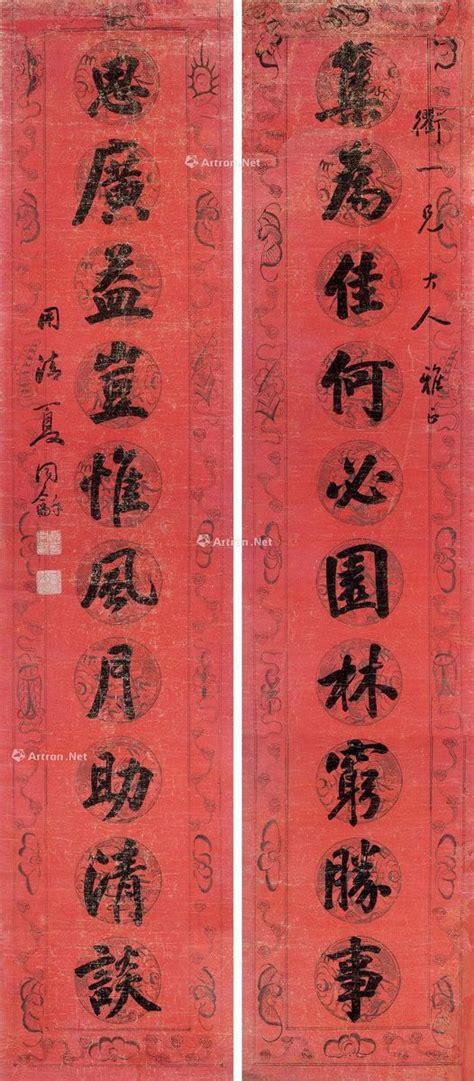 衢一兄大人雅正
集為佳何必園林窮勝事
思廣益豈惟風月助清談
用清夏同龢
Artron.Net
Artron.Net
Artron.Net